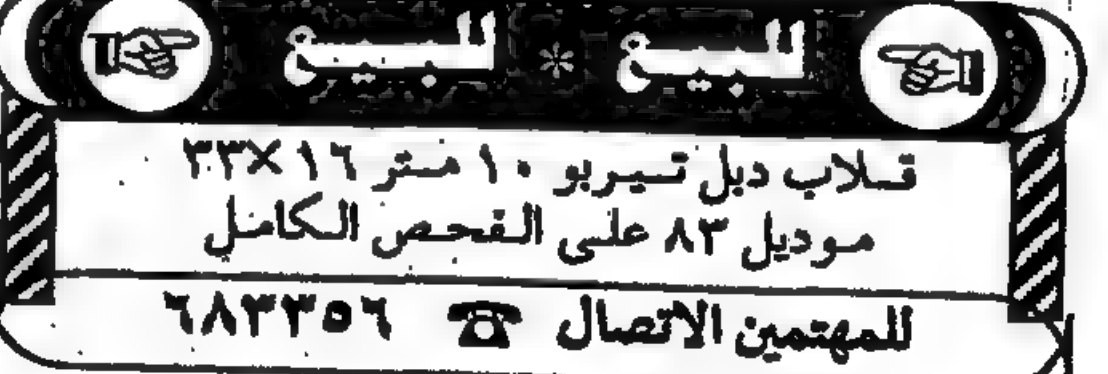 للبيع * للبيع
قلاب دبل تيربو ١٠ متر ١٦×٣٣
موديل ٨٣ على الفحص الكامل
للمهتمين الاتصال ☎ ٦٨٣٣٥٦